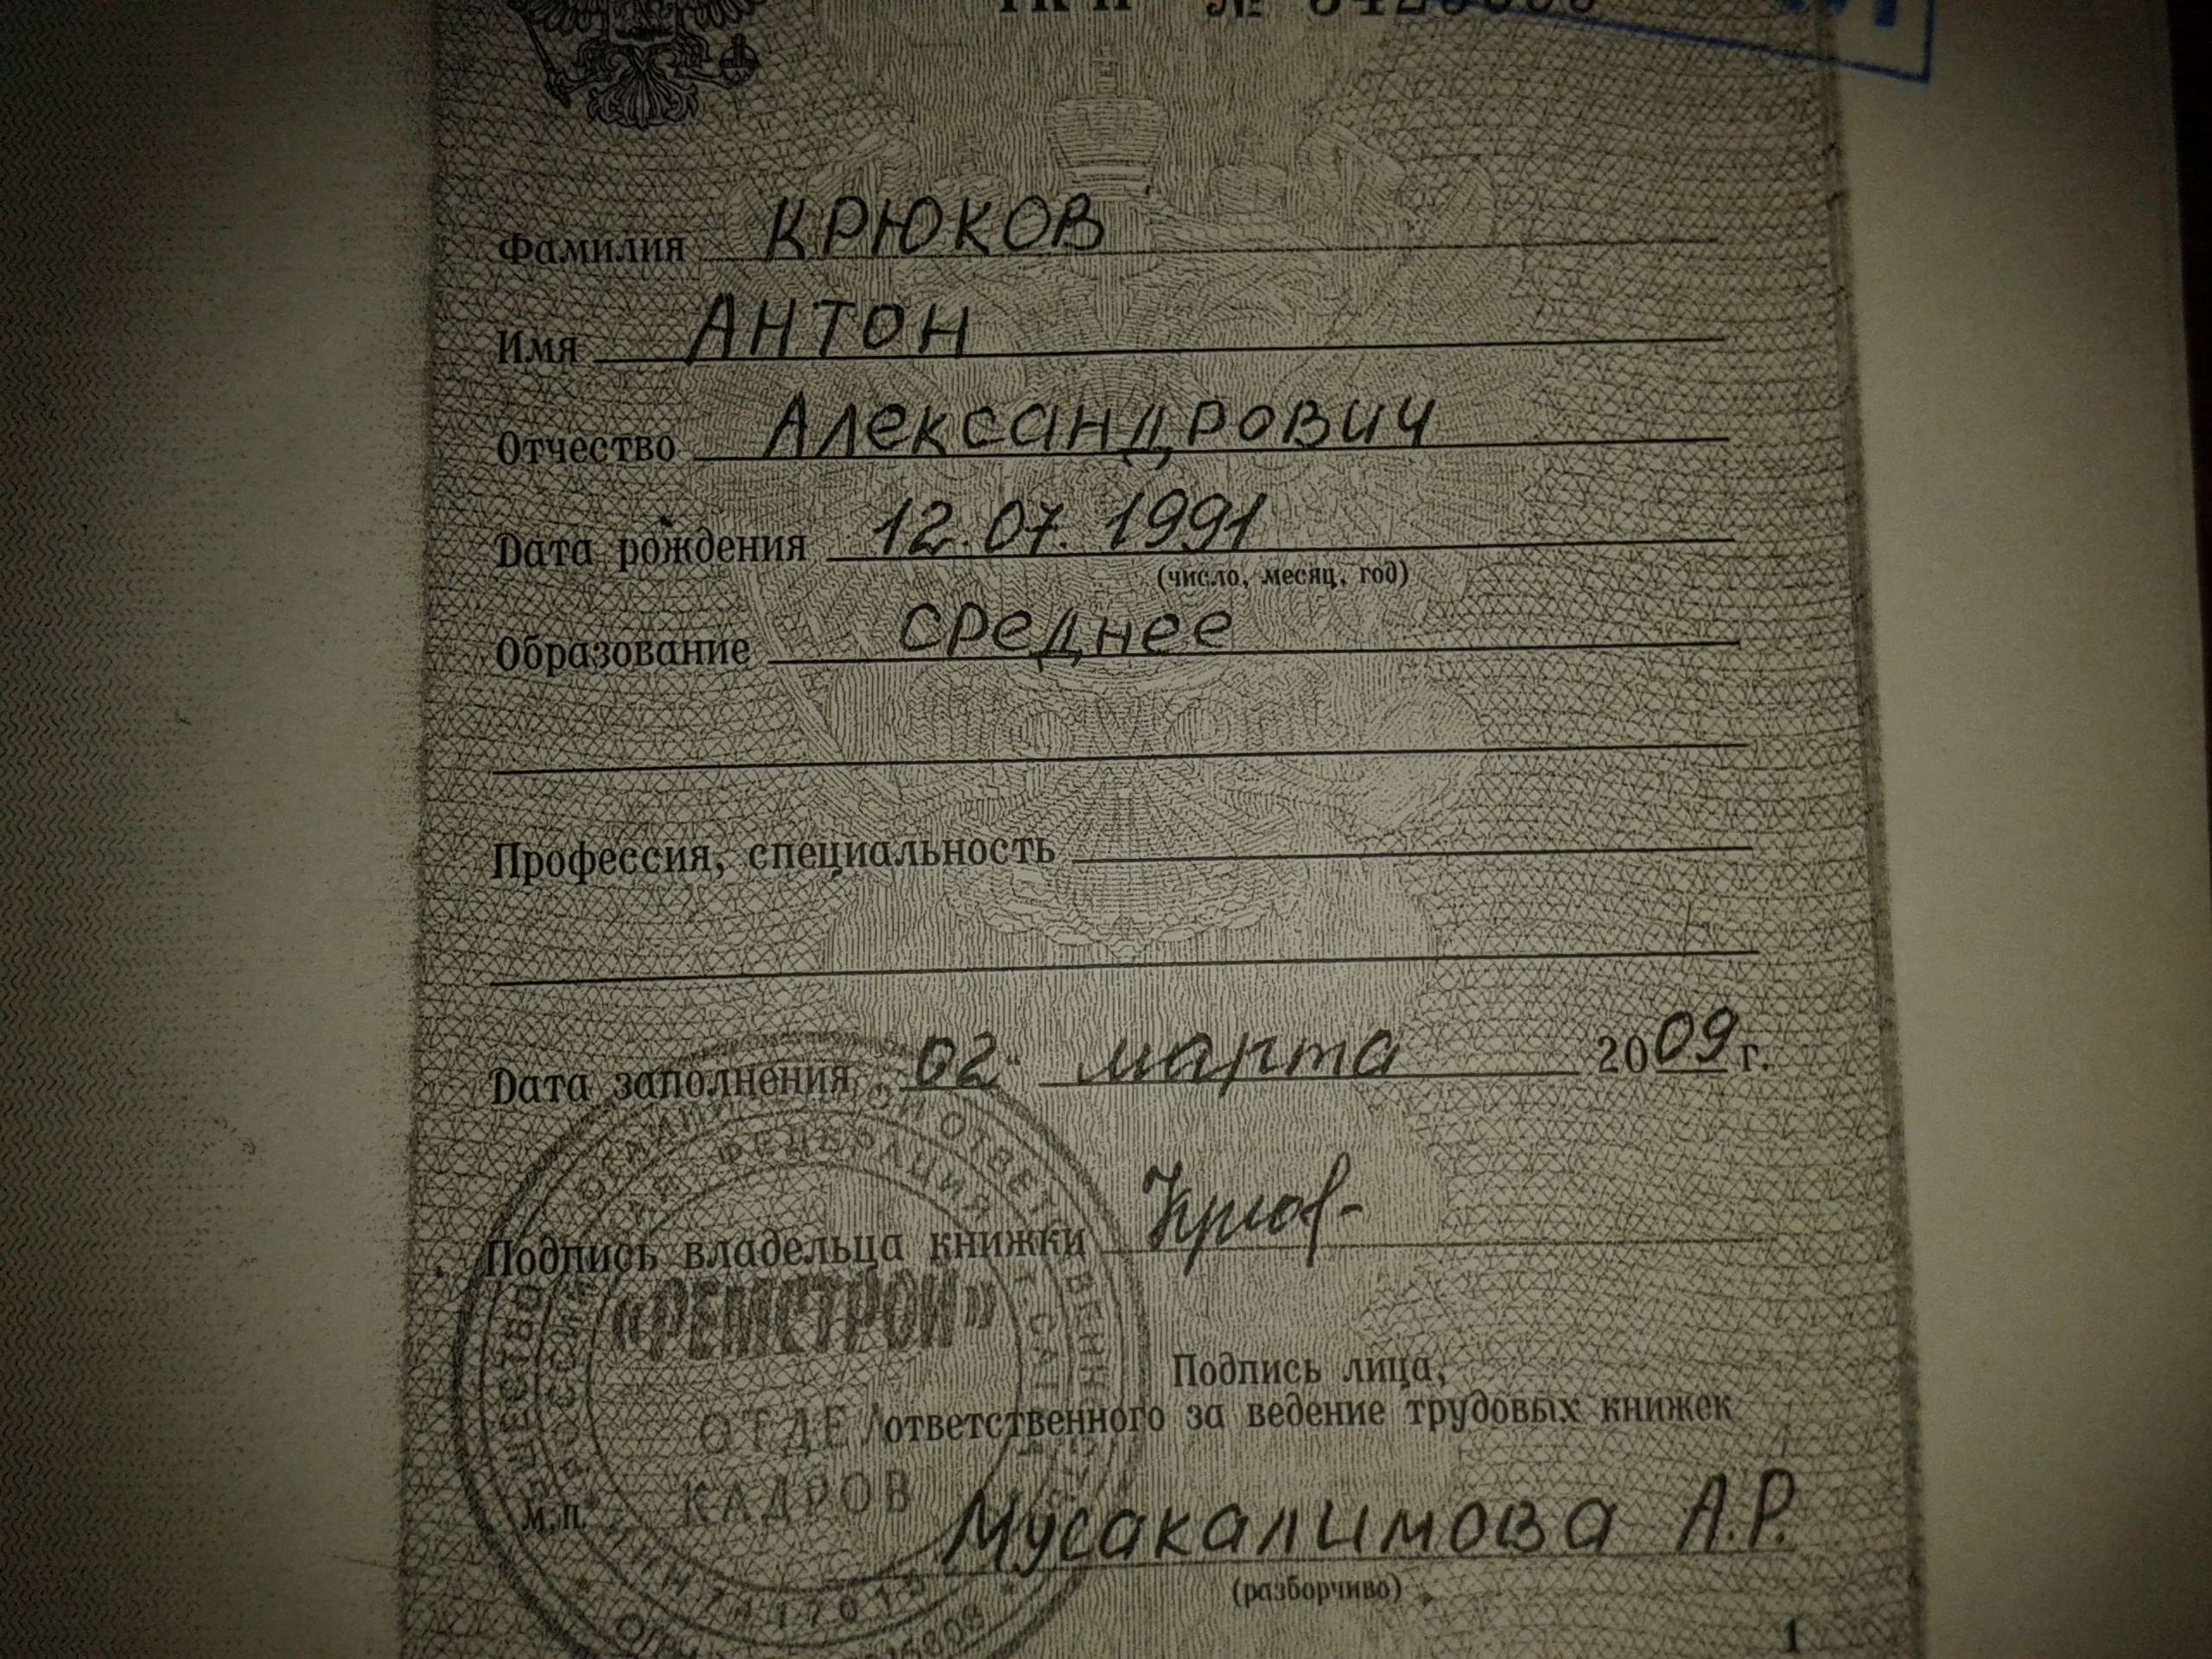 ТК-II №
Фамилия КРЮКОВ
Имя АНТОН
Отчество Александрович
Дата рождения 12.07.1991
(число, месяц, год)
Образование среднее
Профессия, специальность
Дата заполнения „02“ марта 2009 г.
Подпись владельца книжки
«РЕМСТРОЙ»
Подпись лица,
ОТДЕЛ ответственного за ведение трудовых книжек
КАДРОВ
М.П. Мусакалимова А.Р.
(разборчиво)
1